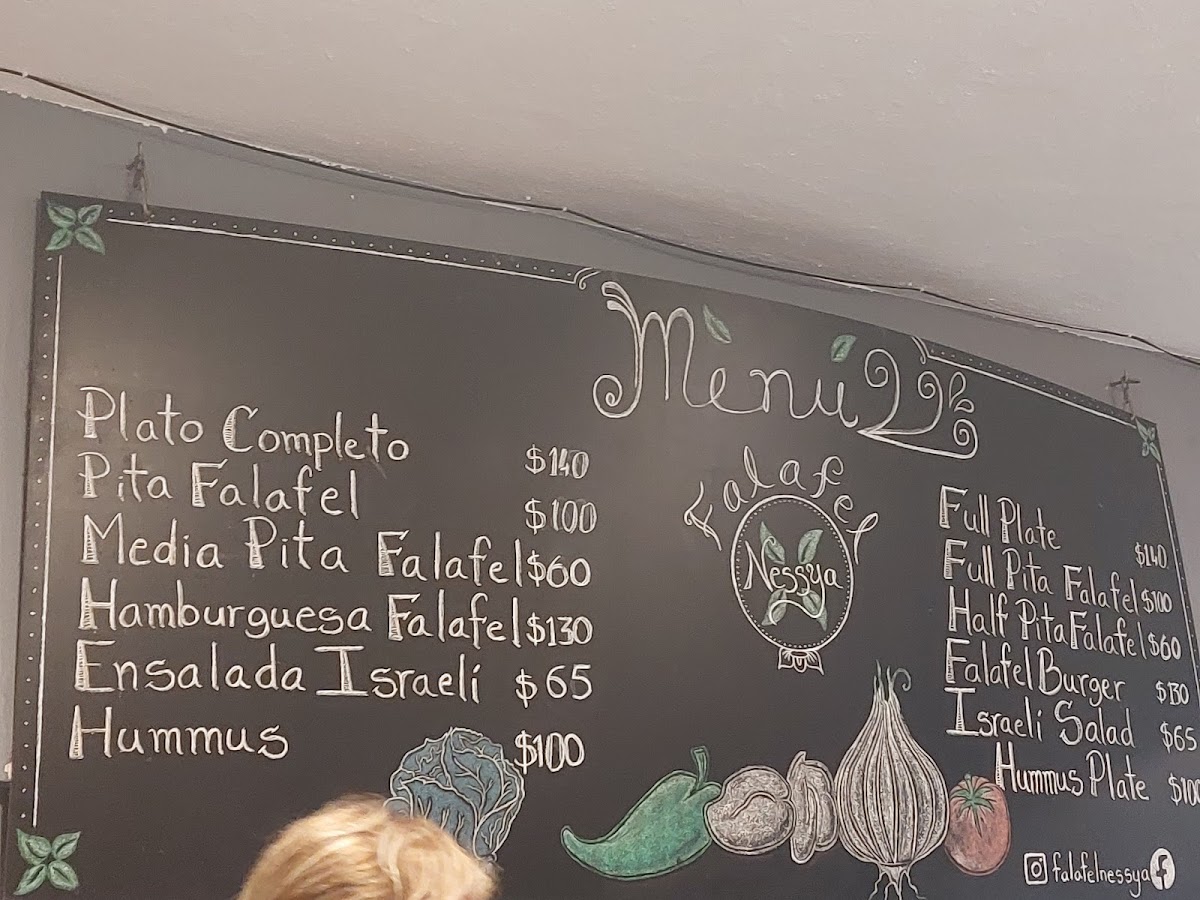 Menú
Plato Completo $140
Pita Falafel $100
Media Pita Falafel $60
Hamburguesa Falafel $130
Ensalada Israelí $65
Hummus $100
Falafel
Nessya
Full Plate $140
Full Pita Falafel $100
Half Pita Falafel $60
Falafel Burger $130
Israeli Salad $65
Hummus Plate $100
falafelnessya